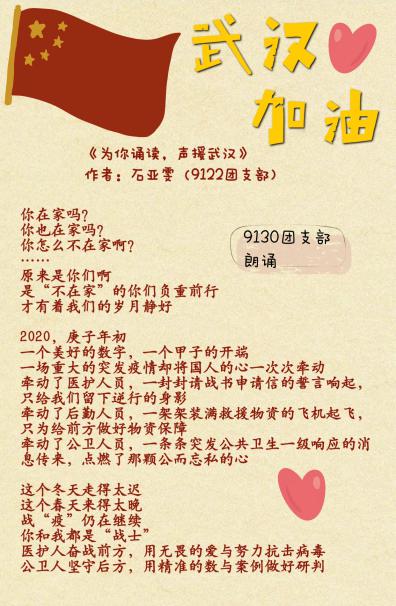 武汉
加油
《为你诵读，声援武汉》
作者：石亚雯（9122团支部）
你在家吗？
你也在家吗？
你怎么不在家啊？
……
9130团支部
朗诵
原来是你们啊
是“不在家”的你们负重前行
才有着我们的岁月静好
2020，庚子年初
一个美好的数字，一个甲子的开端
一场重大的突发疫情却将国人的心一次次牵动
牵动了医护人员，一封封请战书申请信的誓言响起，
只给我们留下逆行的身影
牵动了后勤人员，一架架装满救援物资的飞机起飞，
只为给前方做好物资保障
牵动了公卫人员，一条条突发公共卫生一级响应的消
息传来，点燃了那颗公而忘私的心
这个冬天走得太迟
这个春天来得太晚
战“疫”仍在继续
你和我都是“战士”
医护人奋战前方，用无畏的爱与努力抗击病毒
公卫人坚守后方，用精准的数与案例做好研判